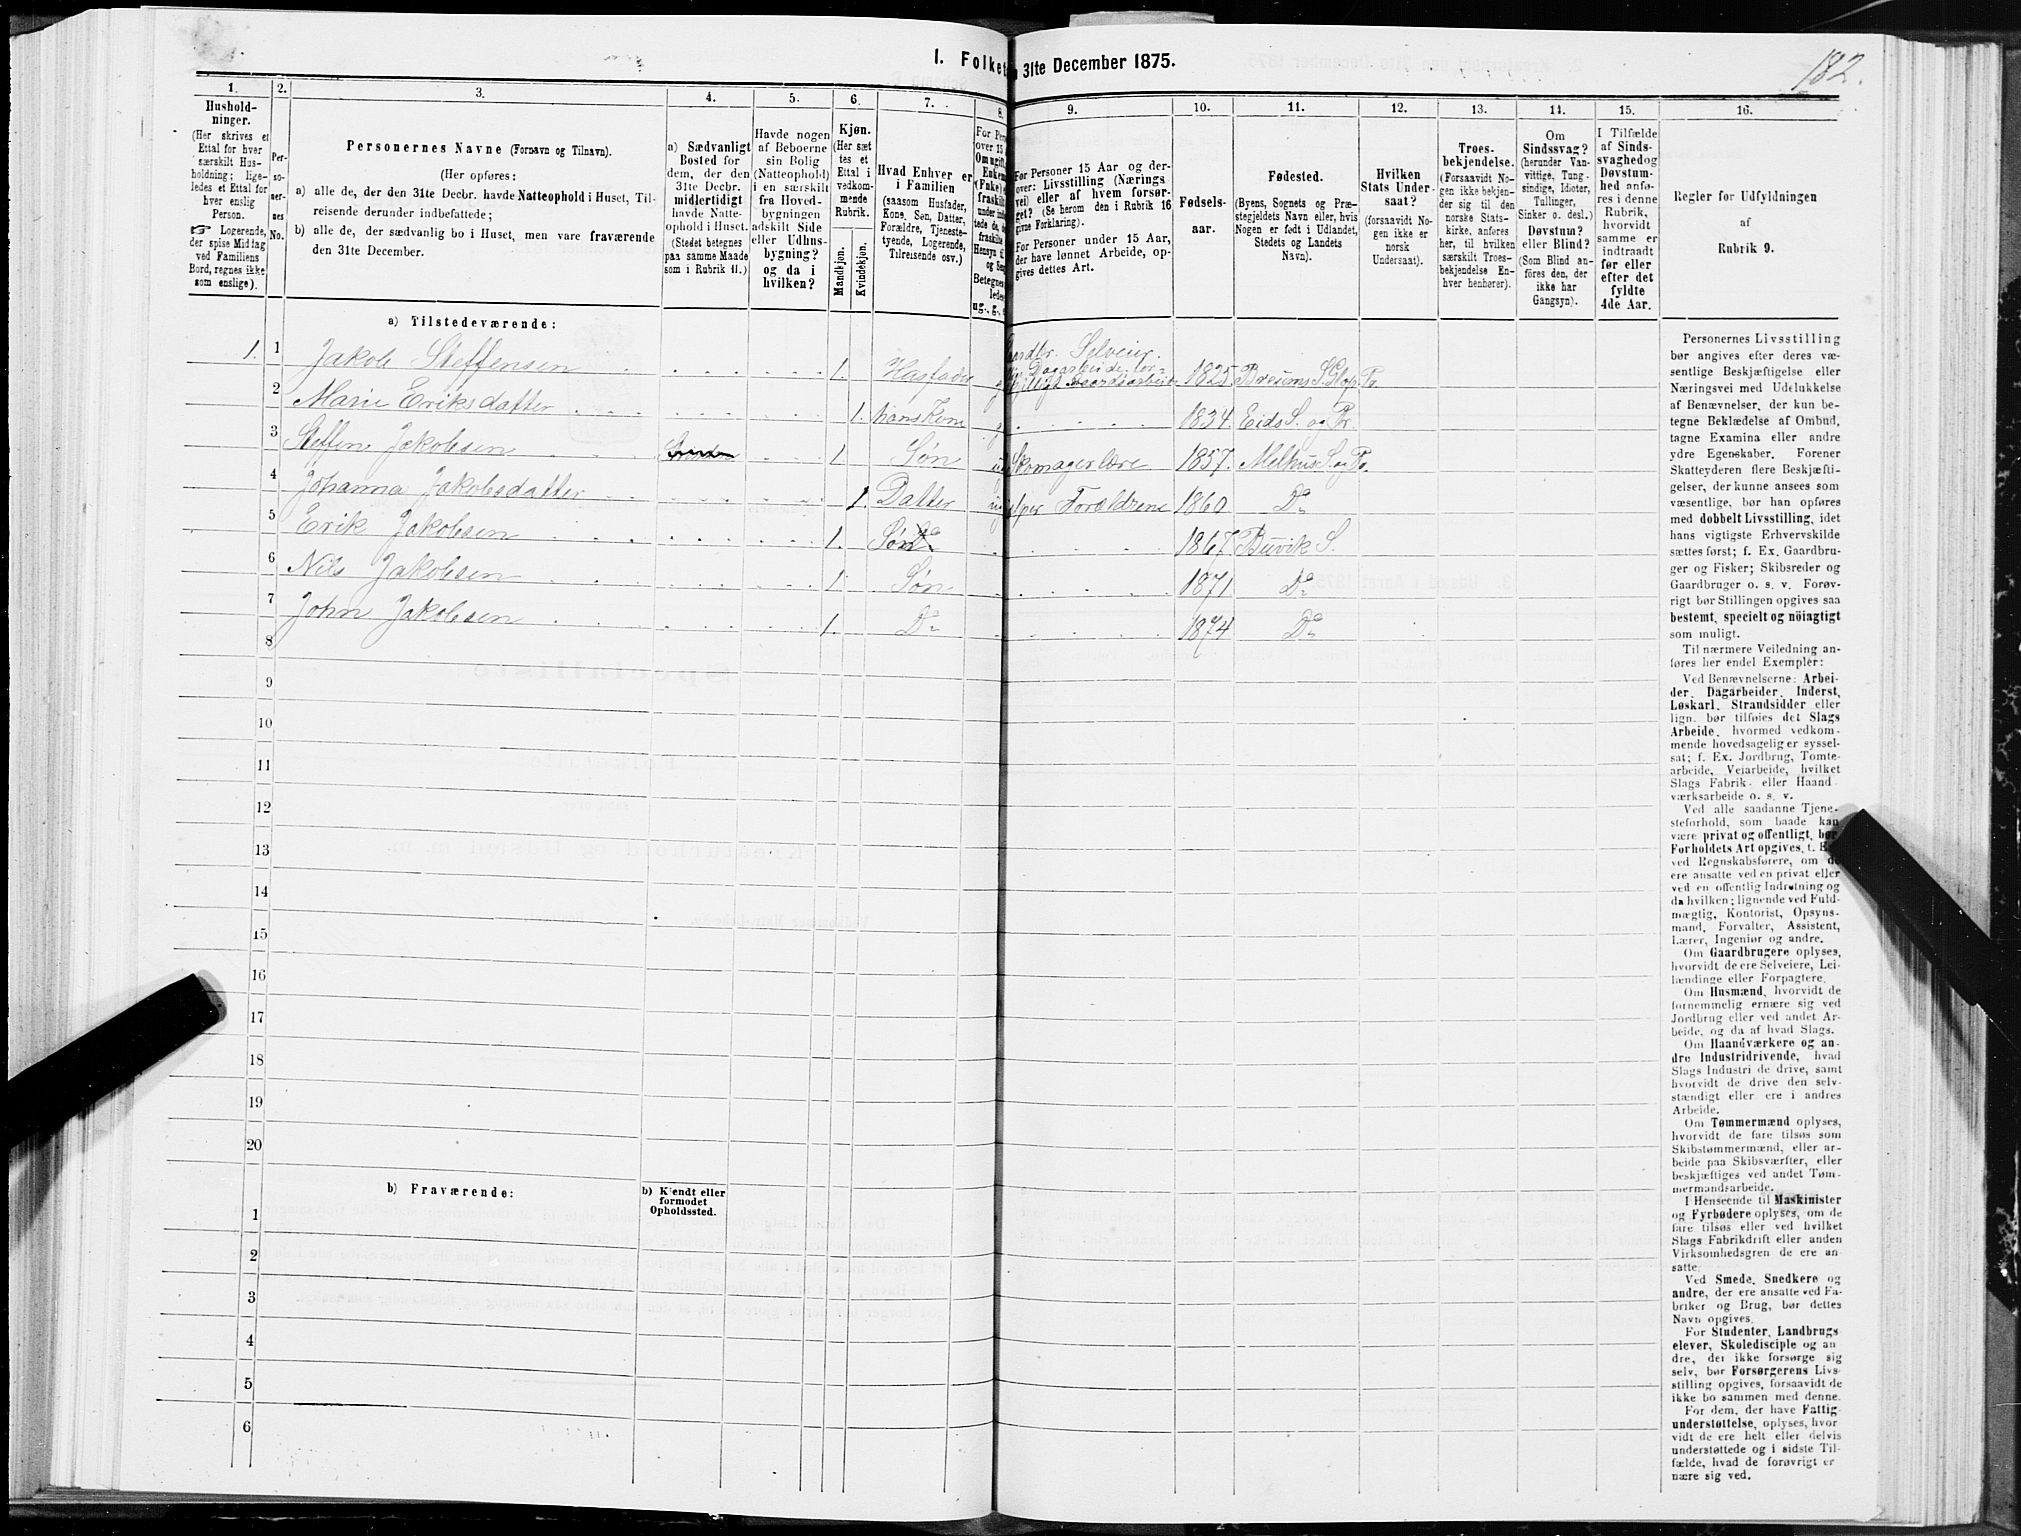 182.
I. Folket
31te December 1875.
1.
2.
3.
4.
5.
6.
7.
8.
9.
10.
11.
12.
13.
14.
15.
16.
Hushold-
ninger.
(Her skrives et
Ettal for hver
særskilt Hus-
holdning; lige-
ledes et Ettal for
hver enslig
Person.
☞ Logerende,
der spise Middag
ved Familiens
Bord, regnes ikke
som enslige).
Per-
so-
ner-
nes
No.
Personernes Navne (Fornavn og Tilnavn).
(Her opføres:
a) alle de, der den 31te Decbr. havde Natteophold i Huset, Til-
reisende derunder indbefattede;
b) alle de, der sædvanlig bo i Huset, men vare fraværende
den 31te December.
a) Sædvanligt
Bosted for
dem, der den
31te Decbr.
midlertidigt
havde Natte-
ophold i Huset.
(Stedet betegnes
paa samme Maade
som i Rubrik 11.)
Havde nogen
af Beboerne
sin Bolig
(Natteophold)
i en særskilt
fra Hoved-
bygningen
adskilt Side
eller Udhus-
bygning?
og da i
hvilken?
Kjøn.
(Her sæt
tes et
Ettal i
vedkom-
mende
Rubrik.
Mandkjøn.
Kvindekjøn.
Hvad Enhver er
i Familien
(saasom Husfader,
Kone, Søn, Datter,
Forældre, Tjeneste-
tyende, Logerende,
Tilreisende osv.)
For Personer 15 Aar og der-
over: Livsstilling (Nærings-
vei) eller af hvem forsør-
get? (Se herom den i Rubrik 16
givne Forklaring).
For Personer under 15 Aar,
der have lønnet Arbeide, op-
gives dettes Art.
Fødsels-
aar.
Fødested.
(Byens, Sognets og Præ-
stegjeldets Navn eller, hvis
Nogen er født i Udlandet,
Stedets og Landets
Navn).
Hvilken
Stats Under-
saat?
(forsaavidt No-
gen ikke er
norsk
Undersaat).
Troes-
bekjendelse.
(Forsaavidt No-
gen ikke bekjen-
der sig til den
norske Stats-
kirke, anføres
her, til hvilken
særskilt Troes-
bekjendelse En-
hver henhører).
Om
Sindssvag?
(herunder Van-
vittige, Tung-
sindige, Idioter,
Tullinger,
Sinker o. desl.)
Døvstum?
eller Blind?
(Som Blind an-
føres den, der
ikke har
Gangsyn).
I Tilfælde
af Sinds-
svaghed og
Døvstum-
hed anfø-
res i denne
Rubrik,
hvorvidt
samme er
indtraadt
før eller
efter det
fyldte
4de Aar.
Regler for Udfyldningen
af
Rubrik 9.
a) Tilstedeværende:
1. 1 Jakob Steffensen 1. Husfader Selveier. 1825
2 Marie Eriksdatter 1. hans Kone 1834. Eids S. og Pr.
3 Steffen Jakobsen 1. Søn Skomagerlære 1857. Melhus S. og Pr.
4 Johanna Jakobsdatter 1. Datter Forældrene 1860 Do
5 Erik Jakobsen 1. Søn 1867 Buvik S.
6 Nils Jakobsen 1. Søn 1871 Do
7 John Jakobsen 1. Do 1874 Do
8
9
10
11
12
13
14
15
16
17
18
19
20
b) Fraværende:
b) Kjendt eller
formodet
Opholdssted.
1
2
3
4
5
6
Personernes Livsstilling
bør angives efter deres væ-
sentlige Beskjæftigelse eller
Næringsvei med Udelukkelse
af Benævnelser, der kun be-
tegne Beklædelse af Ombud,
tagne Examina eller andre
ydre Egenskaber. Forener
Skatteyderen flere Beskjæfti-
gelser, der kunne ansees som
væsentlige, bør han opføres
med dobbelt Livsstilling, idet
hans vigtigste Erhvervskilde
sættes først; f. Ex. Gaardbru-
ger og Fisker; Skibsreder og
Gaardbruger o. s. v. Forøv-
rigt bør Stillingen opgives saa
bestemt, specielt og nöiagtigt
som muligt.
Til nærmere Veiledning an-
føres her endel Exempler:
Ved Benævnelserne: Arbei-
der, Dagarbeider, Inderst,
Løskarl, Strandsidder eller
lign. bør tilføies det Slags
Arbeide, hvormed vedkom-
mende hovedsagelig er syssel-
sat; f. Ex. Jordbrug, Tomte-
arbeide, Veiarbeide, hvilket
Slags Fabrik- eller Haand-
værksarbeide o. s. v.
Ved alle saadanne Tjene-
steforhold, som baade kan
være privat og offentligt, bør
Forholdets Art opgives, f. Ex.
ved Regnskabsførere, om de
ere ansatte ved en privat eller
ved en offentlig Indretning og
da hvilken; lignende ved Fuld-
mægtig, Kontorist, Opsyns-
mand, Forvalter, Assistent,
Lærer, Ingeniør og andre.
Om Gaardbrugere oplyses,
hvorvidt de ere Selveiere, Lei-
lændinge eller Forpagtere.
Om Husmænd, hvorvidt de
fornemmelig ernære sig ved
Jordbrug eller ved andet Ar-
beide, og da af hvad Slags.
Om Haandværkere og an-
dre Industridrivende, hvad
Slags Industri de drive, samt
hvorvidt de drive den selv-
stændigt eller ere i andres
Arbeide.
Om Tømmermænd oplyses,
hvorvidt de fare tilsøs som
Skibstømmermænd, eller ar-
beide paa Skibsværfter, eller
beskjæftiges ved andet Tøm-
mermandsarbeide.
I Henseende til Maskinister
og Fyrbødere oplyses, om de
fare tilsøs eller ved hvilket
Slags Fabrikdrift eller anden
Virksomhedsgren de ere an-
satte.
Ved Smede, Snedkere og
andre, der ere ansatte ved Fa-
briker og Brug, bør dettes
Navn opgives.
For Studenter, Landbrugs-
elever, Skoledisciple og an-
dre, der ikke forsørge sig
selv, bør Forsørgerens Livs-
stilling opgives, forsaavidt de
ikke bo sammen med denne.
For dem, der have Fattig-
understøttelse, oplyses, hvor-
vidt de ere helt eller delvis
understøttede og i sidste Til-
fælde, hvad de forøvrigt er
nære sig ved.